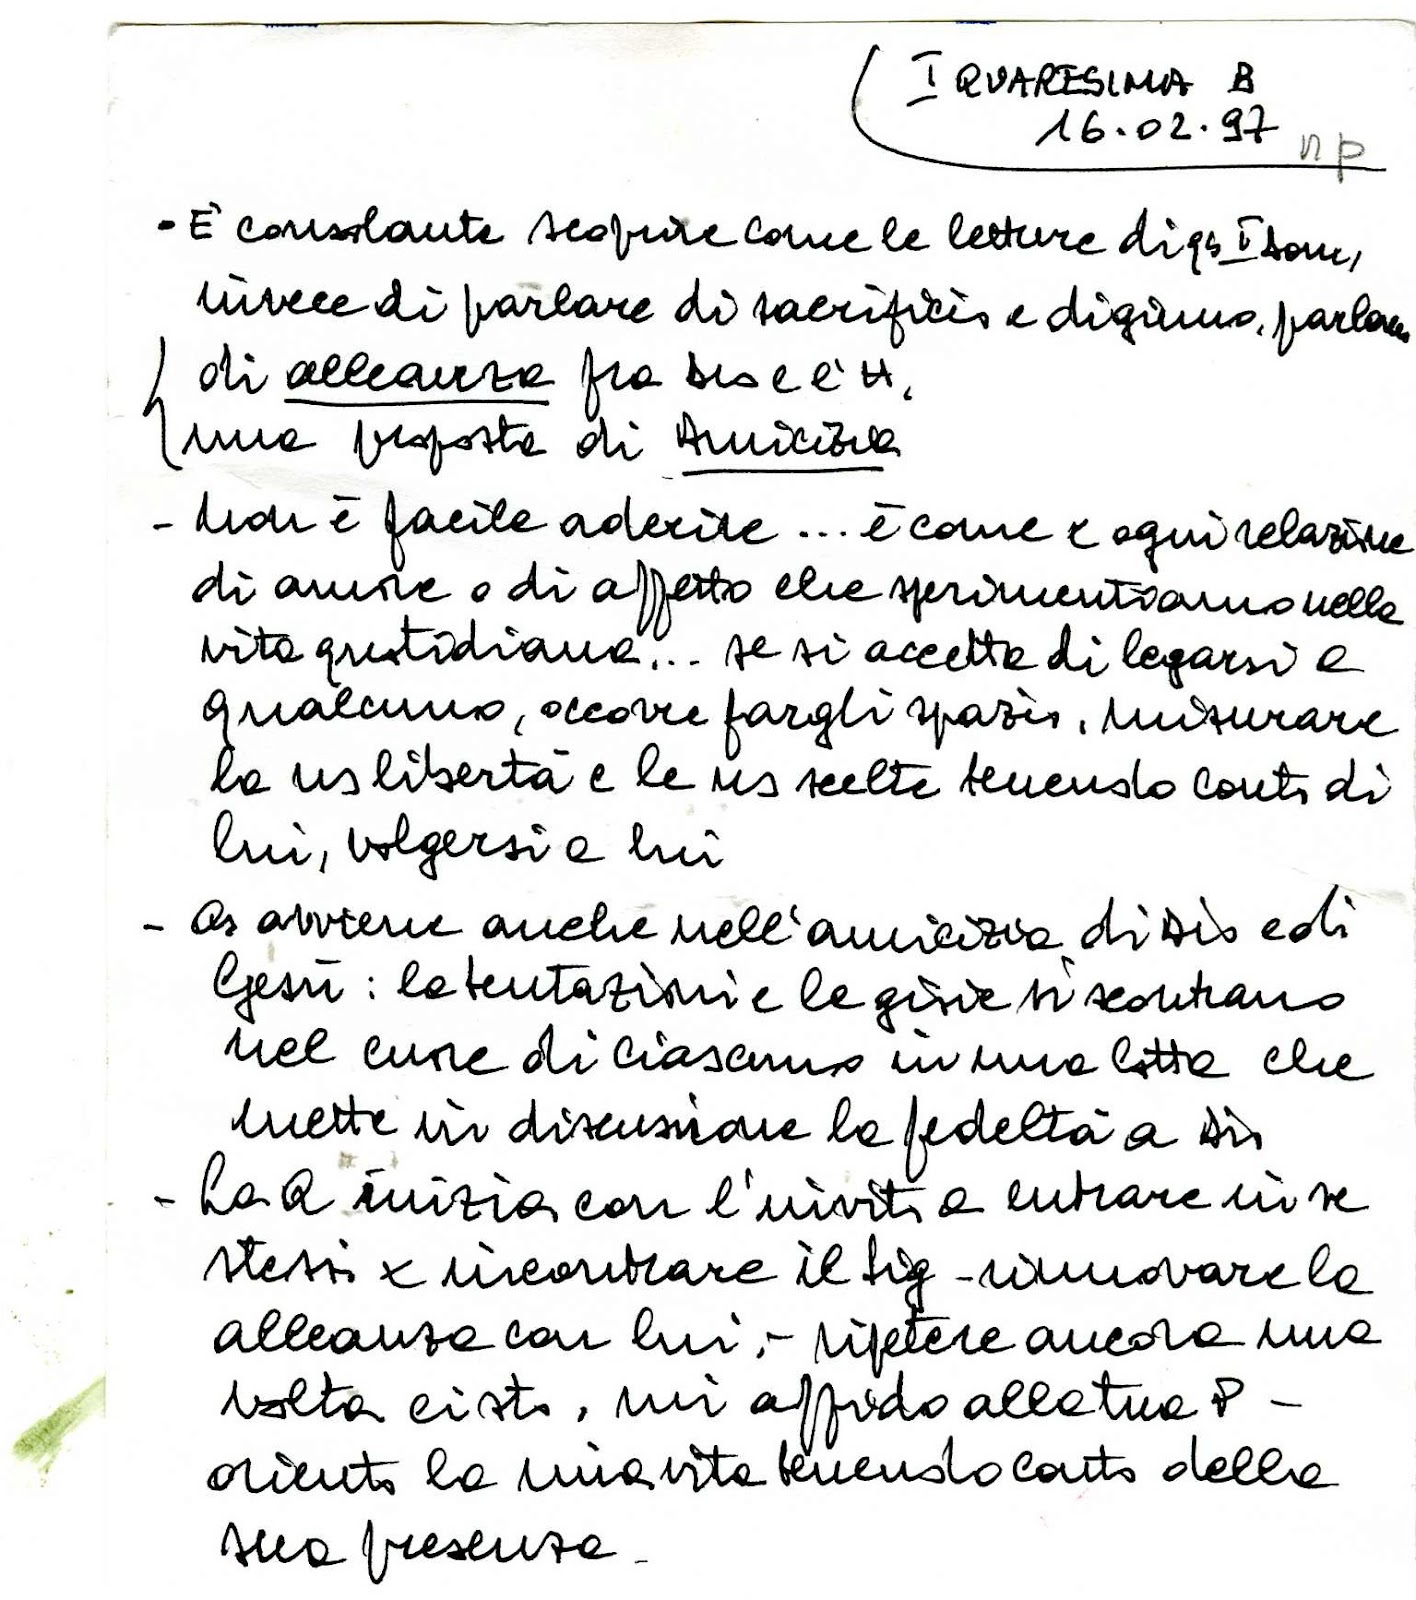 I QUARESIMA B
16.02.97
np
- È consolante scoprire come le letture di qs I Dom,
invece di parlare di sacrificio e digiuno, parlano
di alleanza fra Dio e l'H,
una proposta di Amicizia
- Non è facile aderire ... è come x ogni relazione
di amore o di affetto che sperimentiamo nella
vita quotidiana... se si accetta di legarsi a
qualcuno, occorre fargli spazio, misurare
la ns libertà e le ns scelte tenendo conto di
lui, volgersi a lui
- Qs avviene anche nell'amicizia di Dio e di
Gesù: la tentazioni e le gioie si scontrano
nel cuore di ciascuno in una lotta che
mette in discussione la fedeltà a Dio
- La Q inizia con l'invito a entrare in se
stessi x incontrare il Sig - rinnovare la
alleanza con lui, - ripetere ancora una
volta ci sto, mi affido alla tua P -
oriento la mia vita tenendo conto della
sua presenza -